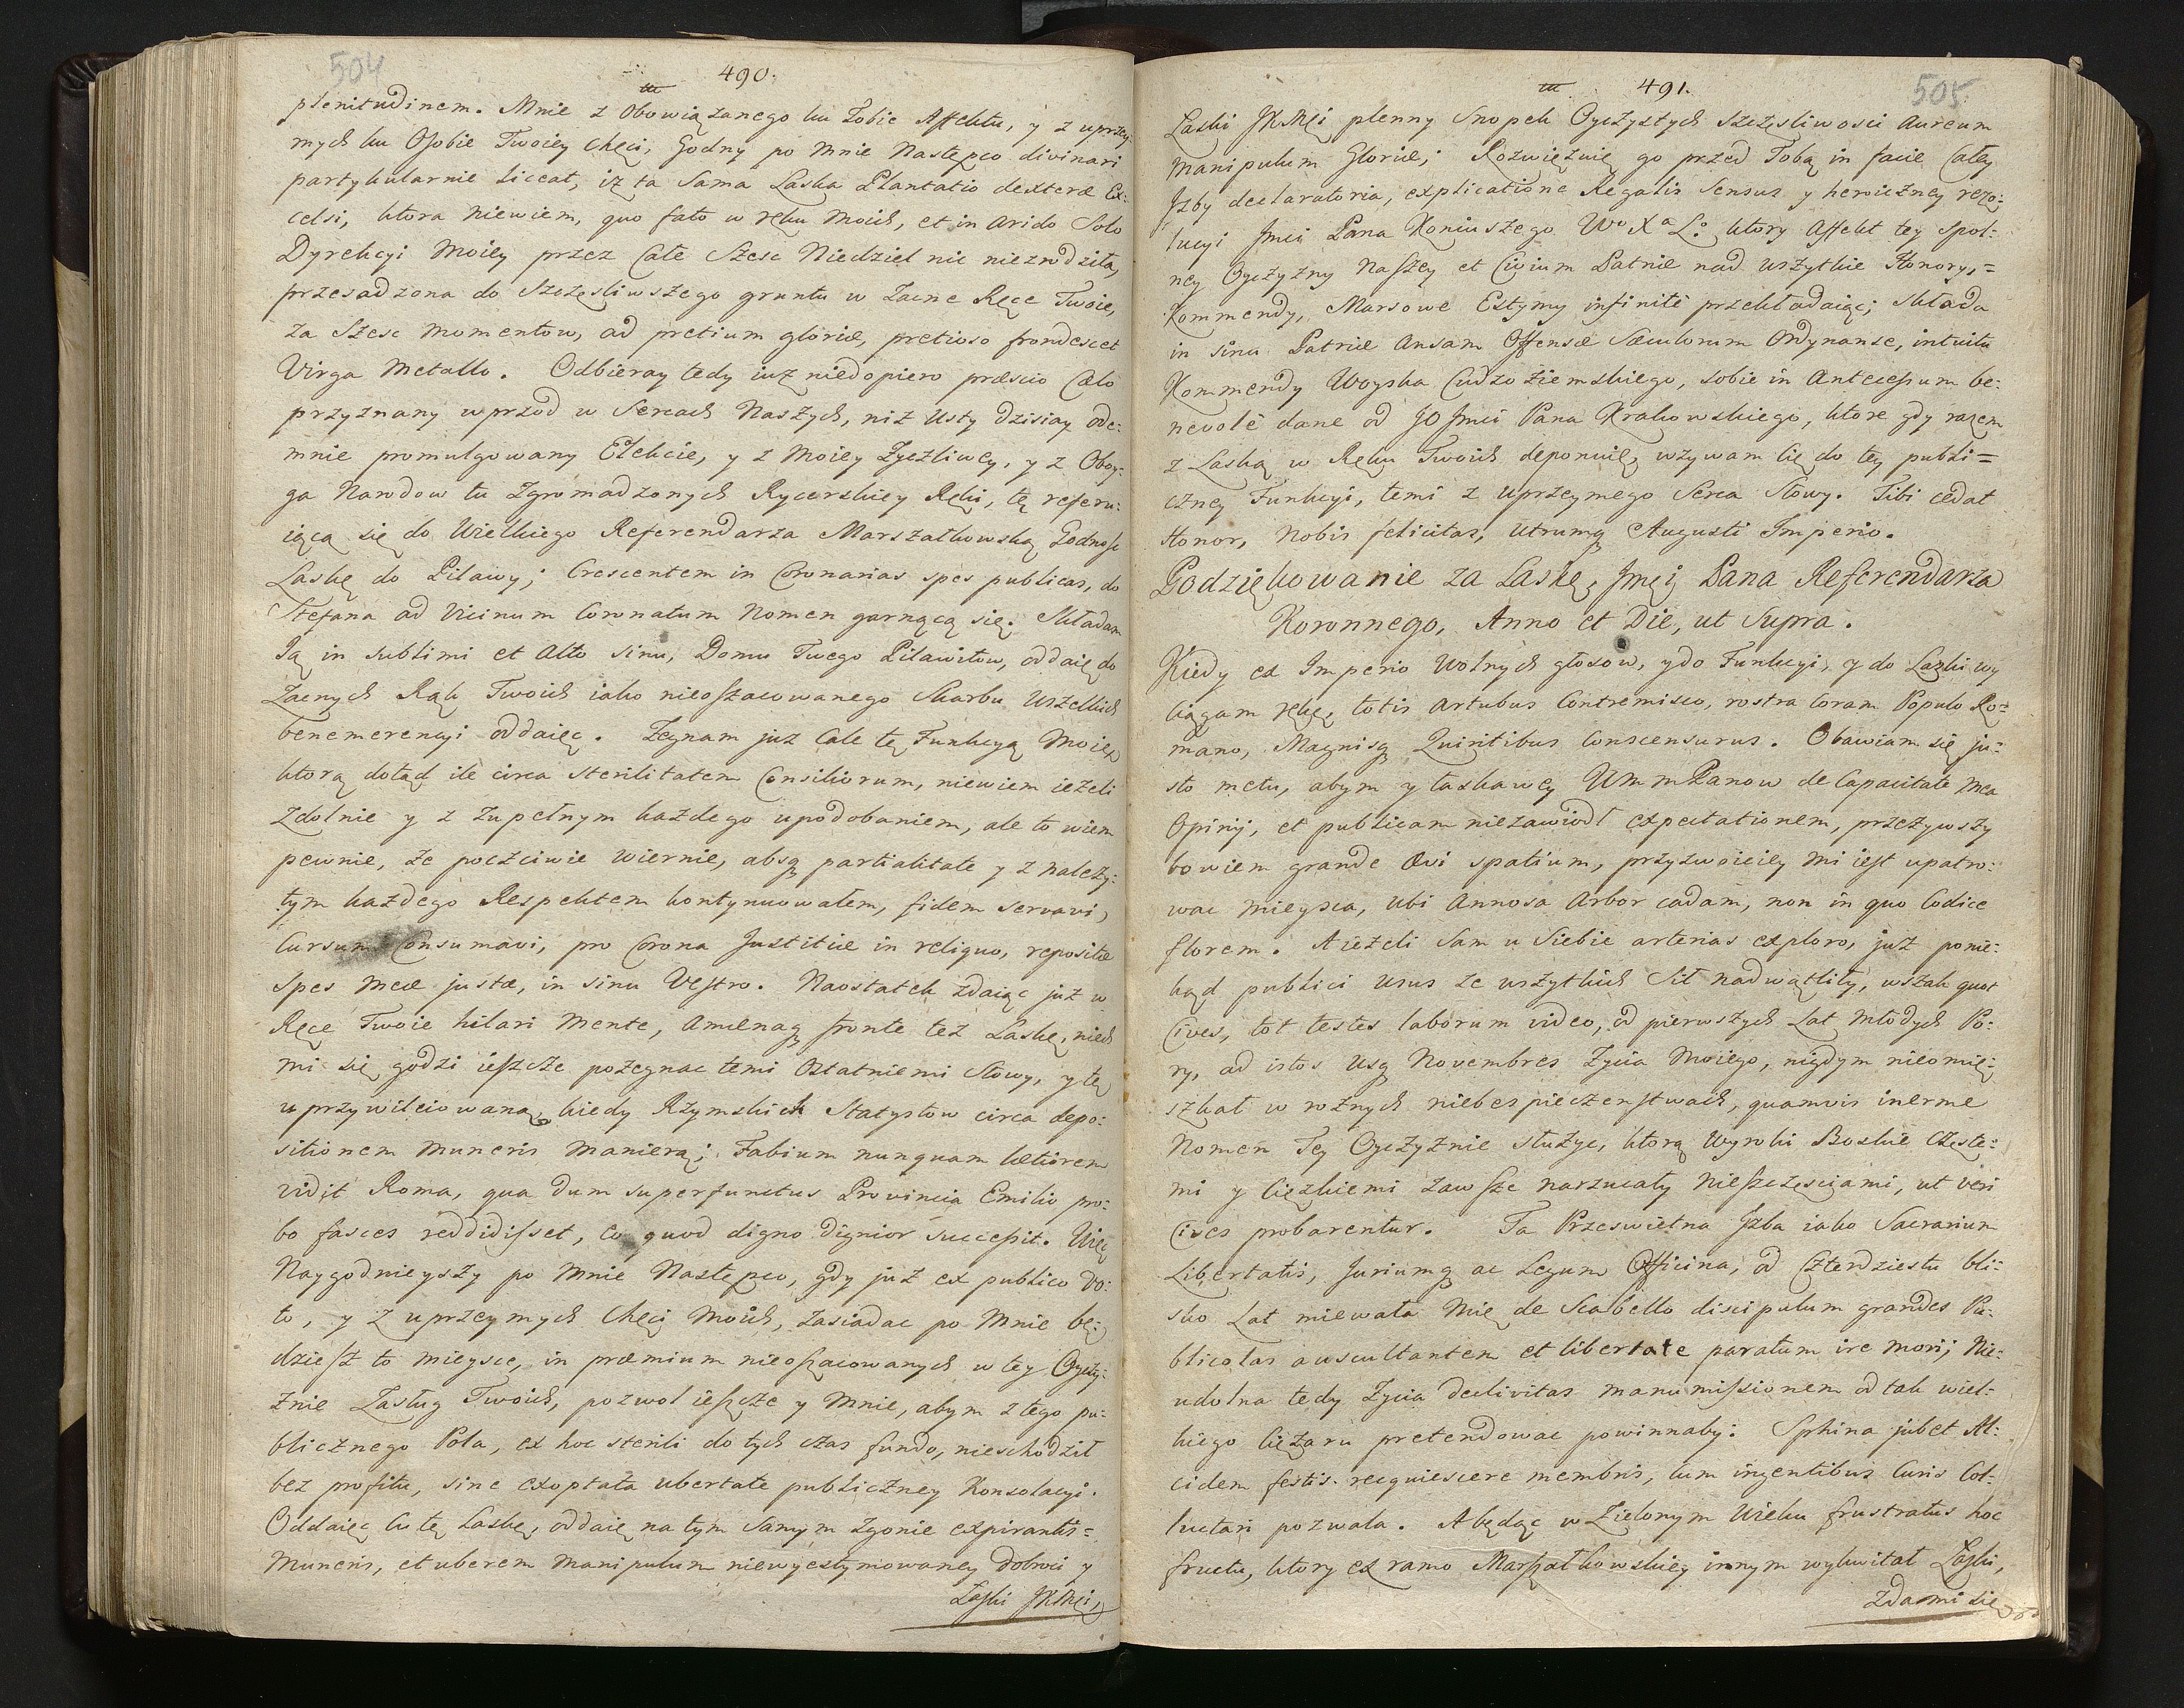 504
490.
plenitudinem. Mnie z Obowiązanego ku Tobie Affektu, y z uprzey
mych ku Osobie Twoiey chęci, Godny po Mnie Następco divinari
partykularnie liceat, iż ta Sama Laska Plantatio dexteræ Ex:
celsi, ktora niewiem, quo fato w ręku moich, et in arido Solo
Dyrekcyi Moiey przez Całe Szesc Niedziel nic niezrodziła,
przesadzona do Szczęsliwszego gruntu w Zacne Ręce Twoie,
za Szesc momentow, ad pretium gloriæ, pretioso frondescet
Virga Metallo. Odbieray tedy iuż niedopiero præscio Cælo
przyznany wprzod w Sercach Naszych, niż Usty dzisiay ode:
mnie promulgowany Elekcie, y z Moiey Zyczliwey, y z Oboy:
ga Narodow tu Zgromadzonych Rycerskiey Ręki, tę referu:
iącą się do Wielkiego Referendarza Marszałkowską Godnosc
Laskę do Pilawy; Crescentem in Coronarias spes publicas, do
Stefana ad vicinum Coronatum Nomen garnącą się. Składam
Ią in sublimi et Alto sinu, Domu Twego Pilawitow, oddaię do
Zacnych Rąk Twoich iako nieoszacowanego Skarbu wszelkich
benemerencyi oddaięc. Żegnam już Cale tę Funkcyą Moię
ktorą dotąd ile circa sterilitatem Consiliorum, niewiem ieżeli
Zdolnie y z Zupełnym każdego upodobaniem, ale to wiem
pewnie, że poczciwie wiernie, absq partialitate y z należy:
tym każdego Respektem kontynuowałem, fidem servavi,
Cursum Consumavi, pro Corona Justitiæ in reliquo, repositæ
Spes meæ justæ, in sinu Vestro. Naostatek zdaiąc już w
Ręce Twoie hilari mente, amænaq fronte też Laskę, niech
mi się godzi ieszcze pożegnac temi Ostatniemi Słowy, y tę
uprzywileiowaną, kiedy Rzymskich Statystow circa depo:
sitionem Muneris manierą; Fabium nunquam lætiorem
vidit Roma, qua dum superfunctus Provincia Emilio pro:
bo fasces reddidisset, eo quod digno dignior successit. Więc
Naygodnieyszy po Mnie Następco, gdy już ex publico vo:
to, y z uprzeymych Chęci Moich, zasiadac po Mnie bę:
dziesz to mieysce, in præmium nieoszacowanych w tey Oyczy:
znie Zasług Twoich, pozwol ieszcze y Mnie, abym z tego pu:
blicznego Pola, ex hoc sterili do tych czas fundo, nieschodził
bez profitu, sine exoptata ubertate publiczney Konsolacyi.
Oddaięc Ci tę Laskę, oddaię na tym Samym Zgonie expirantis=
Muneris, et uberem Manipulum niewyestymowaney dobroci y
Laski JKMci,
505
491.
Laski JKMci plenny Snopek Oyczystych szczęsliwosci Aureum
Manipulum Gloriæ; Rozwięzuię go przed Tobą in facie Całey
Jzby declaratoria, explicatione Regalis Sensus y heroiczney rezo:
lucyi Jmci Pana Koniuszego Wo Xa Lo ktory Affekt tey spol:
ney Oyczyzny Naszey et Civium Patriæ nad wszytkie Honory,=
Kommendy, Marsowe Estymy infinitè przekładaiąc; składa
in sinu Patriæ Ansam Offensæ Sæculorum Ordynanse, intuitu
Kommendy Woyska Cudzoziemskiego, sobie in Antecessum be:
nevolè dane od JO Jmci Pana Krakowskiego, ktore gdy razem
z Laską w Ręku Twoich deponuię, wzywam Cię do tey publi=
czney Funkcyi, temi z uprzeymego Serca Słowy. Tibi cedat
Honor, Nobis felicitas, Utrumq Augusti Imperio.
Podziękowanie za Laskę, Jmci Pana Referendarza
Koronnego, Anno et Die, ut Supra.
Kiedy ex Imperio Wolnych głosow, y do Funkcyi, y do Laski wy
ciągam rękę, totis Artubus Contremisco, rostra Coram Populo Ro=
mano, Magnisq Quiritibus Conscensurus. Obawiam się ju:
sto metu, abym y łaskawey UmmPanow de Capacitate mea
Opinij, et publicam niezawiodł expectationem, przeżywszy
bowiem grande ævi spatium, przyzwoiciey mi iest upatro:
wac mieysca, ubi Annosa Arbor cadam, non in quo Codice
florem. A ieżeli Sam u Siebie arterias exploro, już ponie:
kąd publici usus ze wszytkich Sił nadwątliły, wszak quot
Cives, tot testes laborum video, od pierwszych Lat młodych Po:
ry, ad istos usq Novembres Zycia moiego, nigdym nieomie:
szkał w rożnych niebespieczenstwach, quamvis inerme
Nomen Tey Oyczyznie służyc, ktorą Wyroki Boskie Często:
mi y Cięzkiemi zawsze narzucały Nieszczęsciami, ut veri
Cives probarentur. Ta Przeswietna Jzba iako Sacrarium
Libertatis, Juriumq ac Legum Officina, od Czterdziestu bli:
sko Lat miewała Mię de Scabello discipulum grandes Pu:
blicolas auscultantem et libertate paratum ire mori; Nie:
udolna tedy Zycia declivitas manumissionem od tak wiel:
kiego Ciężaru pretendowac powinnaby: Sphina jubet Al:
cidem festis requiescere membris, cum ingentibus Curis Col:
luctari pozwala. A będąc w Zielonym Wieku frustratus hoc
fructu, ktory ex ramo Marszałkowskiey innym wykwitał Laski,
zda mi się